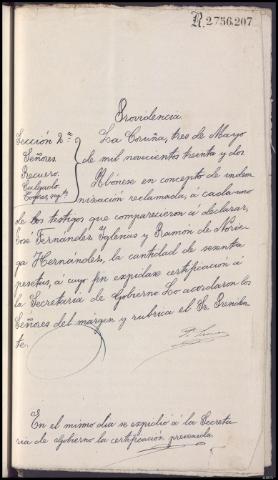 R.2756.207
Providencia
Sección 2ª
Señores
Recuero.
Salgado.
La Coruña, tres de Mayo
de mil novecientos treinta y dos
Abónese en concepto de indem
nización reclamada, á cada uno
de los testigos que comparecieron á declarar,
José Fernandez Yglesias y Ramón de Norie
ga Hernández, la cantidad de sesenta
pesetas, á cuyo fin expidase certificación á
la Secretaria de Gobierno Lo acordaron los
Señores del margen y rubrica el Sr. Presiden
te.
En el mismo dia se expidió á la Secreta
ria de Gobierno la certificación prevenida